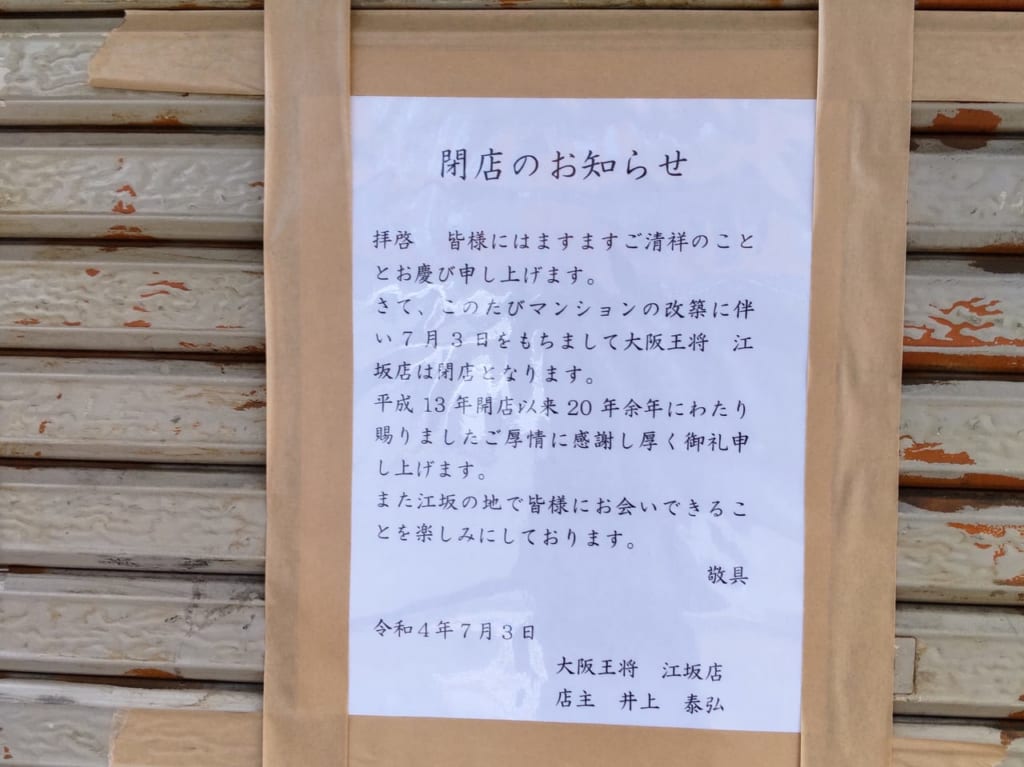 閉店のお知らせ
拝啓　皆様にはますますご清祥のこと
とお慶び申し上げます。
さて、このたびマンションの改築に伴
い７月３日をもちまして大阪王将　江
坂店は閉店となります。
平成 13 年開店以来 20 年余年にわたり
賜りましたご厚情に感謝し厚く御礼申
し上げます。
また江坂の地で皆様にお会いできるこ
とを楽しみにしております。
敬具
令和４年７月３日
大阪王将　江坂店
店主　井上　泰弘